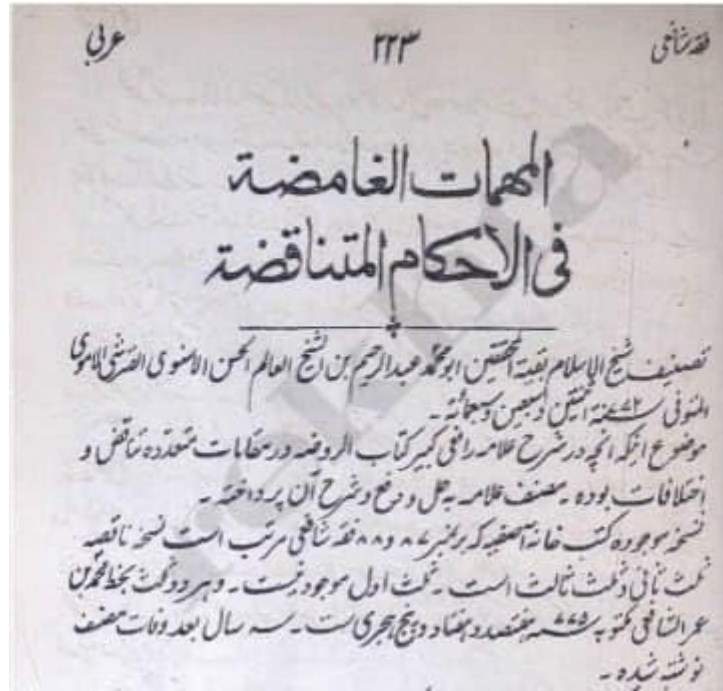 فقه شافعی ۲۲۳ عربی
المهمات الغامضة
فی الاحکام المتناقضة
تصنیف شیخ الاسلام بقیة المحققین ابو محمد عبدالرحیم بن الشیخ العالم الحسن الاسنوی القرشی الاموی
المتوفی ۷۷۲ سنة اثنتین و سبعین و سبعمائة ـ
موضوع اینکه آنچه در شرح علامه رافعی کبیر کتاب الروضه در مقامات متعدده تناقض و
اختلافات بوده ـ مصنف علامه به حل و رفع و شرح آن پرداخته ـ
نسخه موجوده کتب خانه آصفیه که بر نمبر ۸۷ و ۸۸ فقه شافعی مرتب است نسخه ناقصه
ثلث ثانی و ثلث ثالث است ـ ثلث اول موجود نیست ـ و هر دو ثلث بخط محمد بن
عمر الشافعی مکتوبه ۷۷۵ هفتصد و هفتاد و پنج هجری است ـ سه سال بعد وفات مصنف
نوشته شده ـ